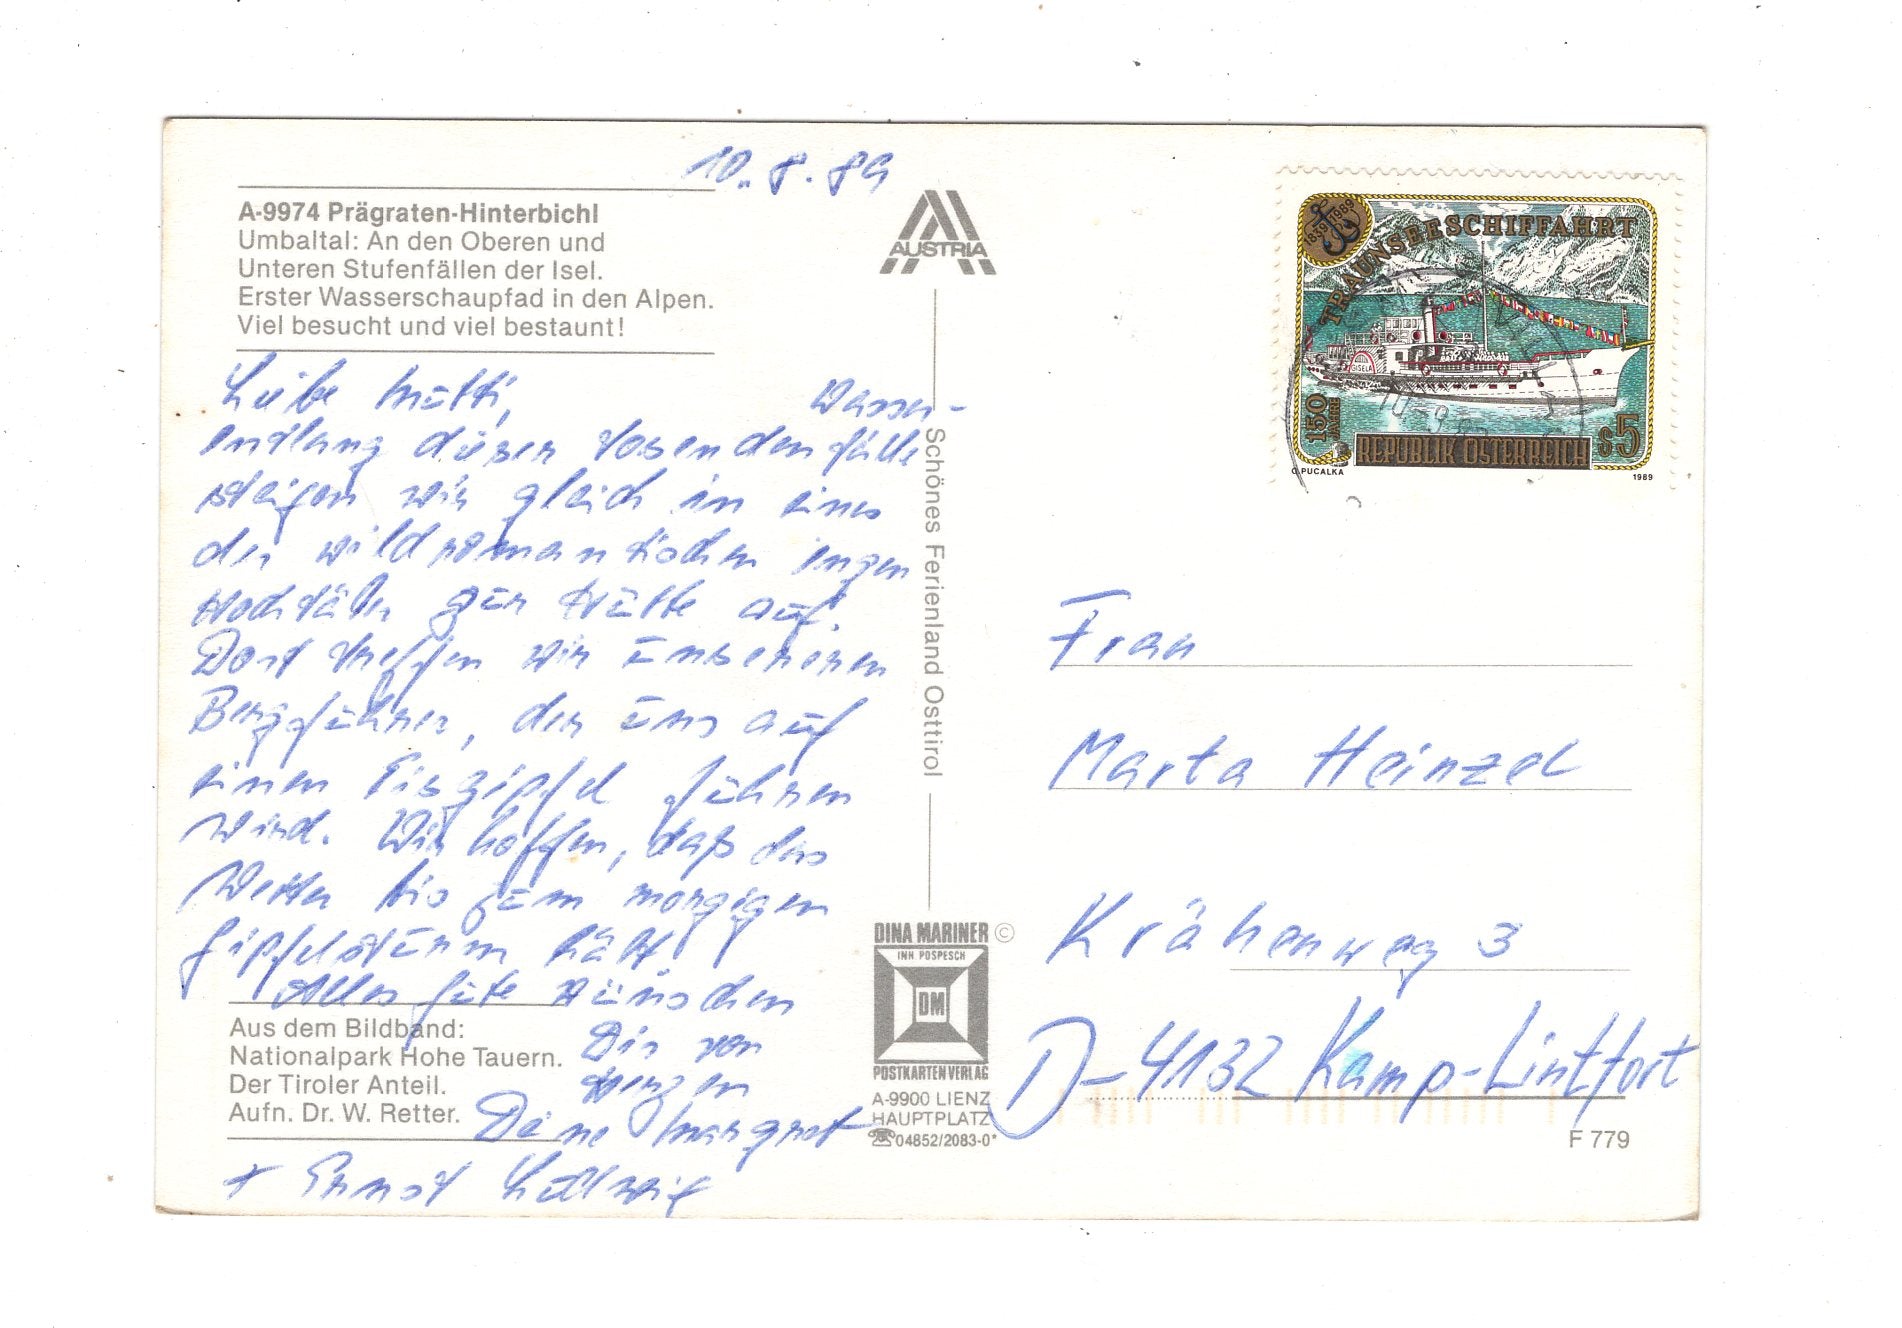 10.8.89
A-9974 Prägraten-Hinterbichl
Umbaltal: An den Oberen und
Unteren Stufenfällen der Isel.
Erster Wasserschaupfad in den Alpen.
Viel besucht und viel bestaunt!
Liebe Mutti,
Wasser-
entlang dieser tosenden fälle
steigen wir gleich in eines
der wildromantischen engen
Hochtäler zur Hütte auf.
Dort treffen wir unseren
Bergführer, der uns auf
einen Eisgipfel führen
wird. Wir hoffen, daß das
Wetter bis zum morgigen
Gipfelsturm hält!
Alles Gute wünschen
Dir von
Herzen
Deine Margret
+ Ernst Ludwig
Aus dem Bildband:
Nationalpark Hohe Tauern.
Der Tiroler Anteil.
Aufn. Dr. W. Retter.
AUSTRIA
Schönes Ferienland Osttirol
DINA MARINER ©
INH POSPESCH
DM
POSTKARTENVERLAG
A-9900 LIENZ
HAUPTPLATZ
☎04852/2083-0*
1839 1989
TRAUNSEESCHIFFAHRT
GISELA
150 JAHRE
REPUBLIK ÖSTERREICH
S5
O. PUCALKA
1989
Frau
Marta Heinzel
Krähenweg 3
D-4132 Kamp-Lintfort
F 779